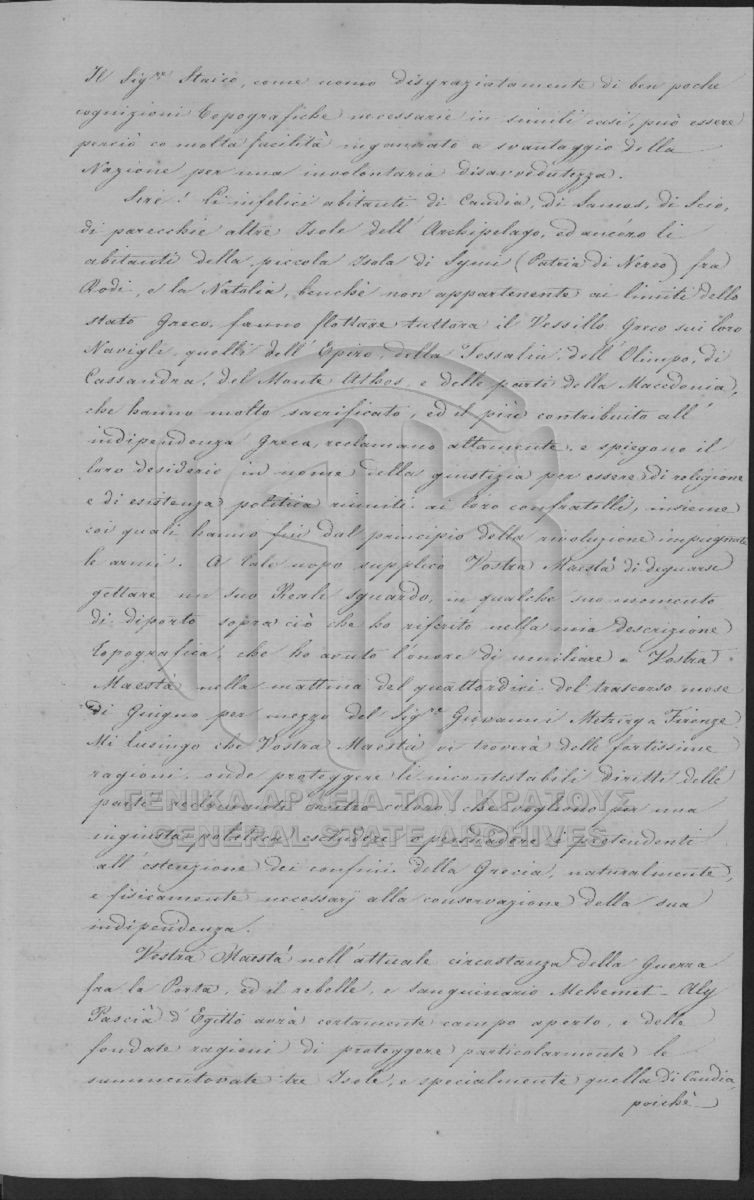 Il Sig.re Staico, come uomo disgraziatamente di ben poche
cognizioni topografiche necessarie in simili casi, può essere
perciò co molta facilità ingannato a svantaggio della
Nazione per una involontaria disavvedutezza.
Sire! Gl'infelici abitanti di Candia, di Samos, di Scio,
di parecchie altre Isole dell'Archipelago, ed ancóro li
abitanti della piccola Isola di Symi (Patria di Nereo) fra
Rodi, e la Natolia, benchè non appartenente ai limiti dello
stato Greco, fanno flottare tuttora il Vessillo Greco sui loro
Navigli, quelli dell'Epiro, della Tessalia, dell'Olimpo, di
Cassandra, del Monte Athos, e delle parti della Macedonia,
che hanno molto sacrificato, ed il più contribuito all'
indipendenza Greca, reclamano altamente, e spiegono il
loro desiderio in nome della giustizia per essere di religione
e di esistenza politica riuniti ai loro confratelli, insieme
coi quali hanno fin dal principio della rivoluzione impugnate
le armi. A tale uopo supplico Vostra Maestà di degnarse
gettare un suo Reale sguardo, in qualche suo momento
di diporto sopra ciò che ho riferito nella mia descrizione
Topografica, che ho avuto l'onore di umiliare a Vostra
Maestà nella mattina del quattordici del trascorso mese
di Giugno per mezzo del Sig.re Giovanni a Firenze.
Mi lusingo che Vostra Maestà vi troverà delle fortissime
ragioni, onde proteggere li incontestabili diritti delle
parti reclamanti contro coloro che vogliono per una
ingiusta politica escludere o persuadere i pretendenti
all'estenzione dei confini della Grecia, naturalmente,
e fisicamente necessarÿ alla conservazione della sua
indipendenza.
Vostra Maestà nell'attuale circostanza della Guerra
fra la Porta, ed il rebelle, e sanguinario Mehemet-Aly
Pascià d'Egitto avrà certamente campo aperto, e delle
fondate ragioni di proteggere particolarmente le
summentovate tre Isole, e specialmente quella di Candia,
poichè
ΓΕΝΙΚΑ ΑΡΧΕΙΑ ΤΟΥ ΚΡΑΤΟΥΣ
GENERAL STATE ARCHIVES